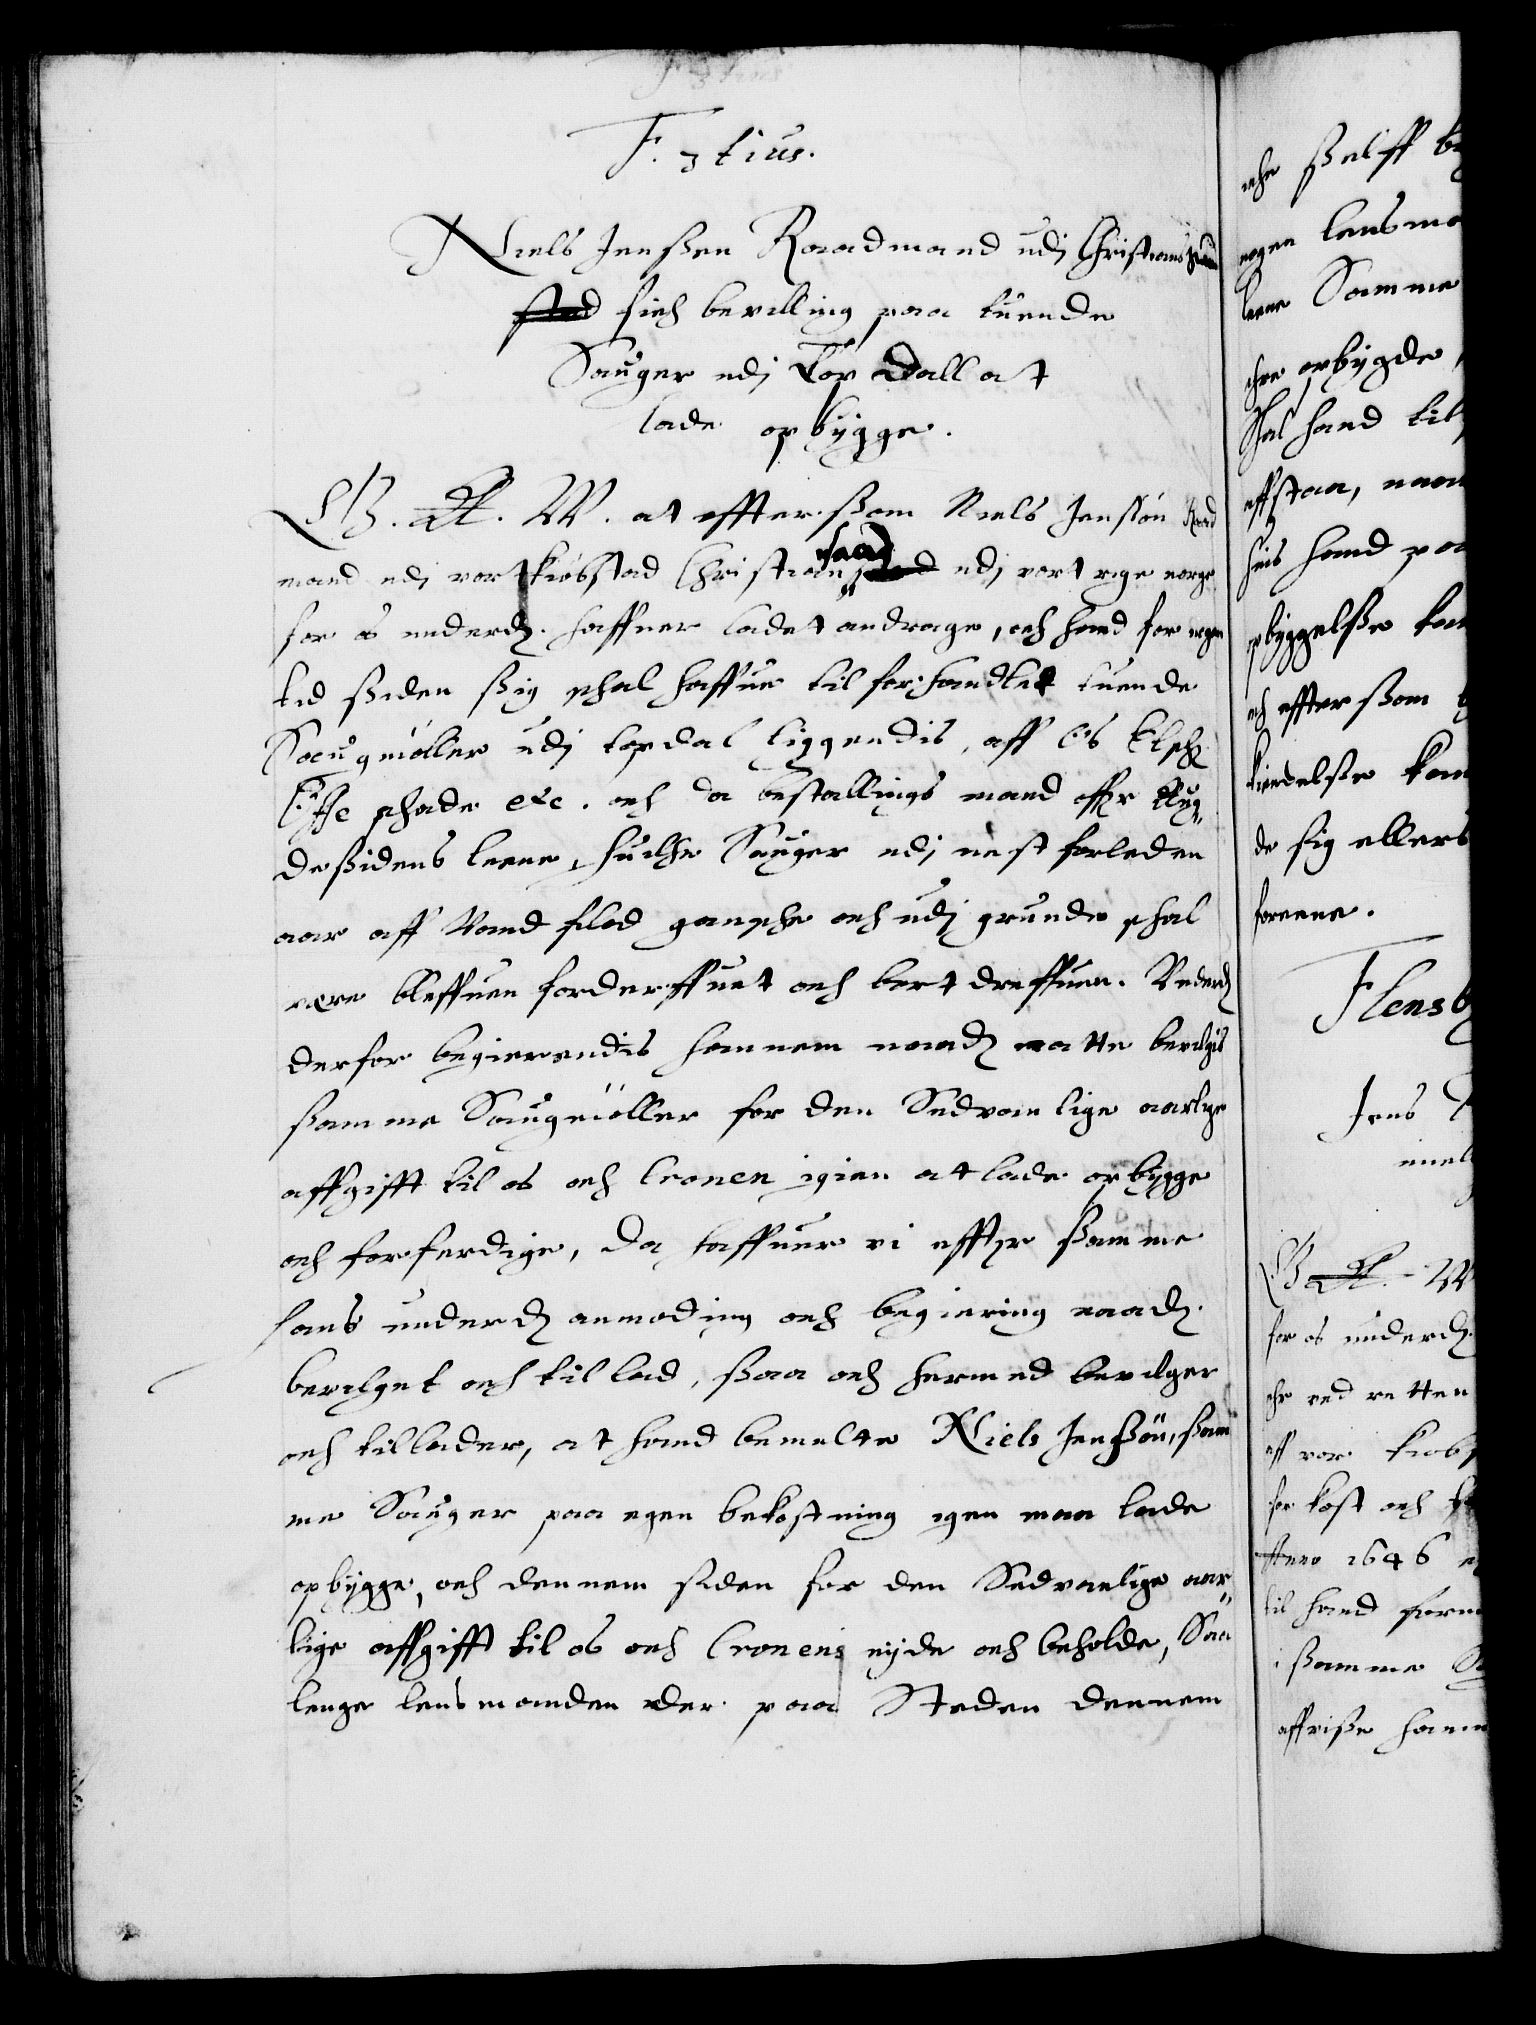 F. 3tius.
Niels Jenßen Raadmand udj Christians
stad fich bevilling paa tuende
Sauger udj Top Dall at
lade opbygge.
G. A. W. at efftersom Niels Jenssøn Raad
mand udj vort kiøbstad Christiansand udj vort rige norge
for os underd. haffuer ladet andrage, och hand for nogen
tid ßiden ßig schal haffue tilforhandlet tuende
Saugmøller udj topdal liggendis, aff Os Elsch.
Offe schade etc. och da bestallings mand offr Ny„
deßidens leene, huilche Sauger udj nest forleden
aar aff Vand flod gansche och udj grunde schal
vere bleffuen forderffuet och bort dreffuen. Underd
derfor begierendis hannem naad. matte bevilgis
ßamme Saugmøller for den Sedvanlige aarlige
affgifft til os och Cronen igien at lade opbygge
och forferdige, da haffuer vi effter ßamme
hans underd anmoding och begiering naad.
bevilget och tillad, ßaa och hermed bevilger
och tillader, at hand bemelte Niels Jenßøn, ßam
me Sauger paa egen bekostning igen maa lade
opbygge, och dennem siden for den Sedvanlige aar„
lige affgifft til os och Cronens nyde och beholde, Saa
lenge lensmanden der paa Steden dennem
ßelff
nogen lensma
Samme
opbygde,
Schal hand til
affstaa, naar
his hand paa
opbyggelße kan
och effter ßom
kiendelße kan
de sig ellers
foreene.
Flensb
Jens
G A. W
for os underd.
ved retten
aff vor kiøbs
for kost och
Anno 1646
til hand form
i ßamme
affviße hann